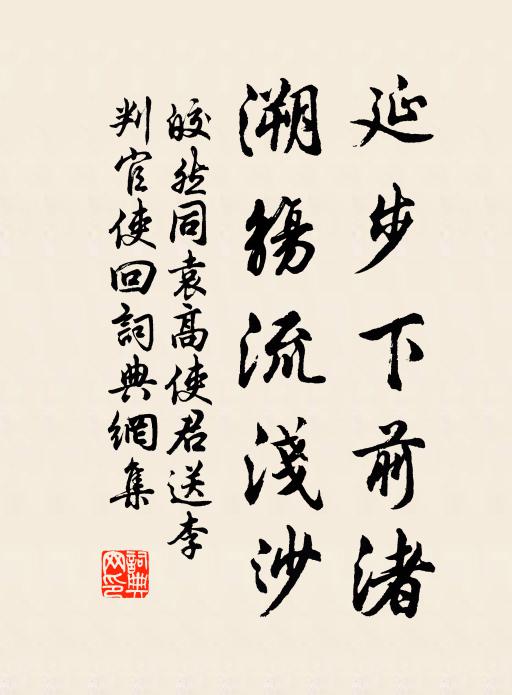 延步下前渚
溯觴流淺沙
皎然同袁高使君送李
判官使回詞典網集
詞典
网印